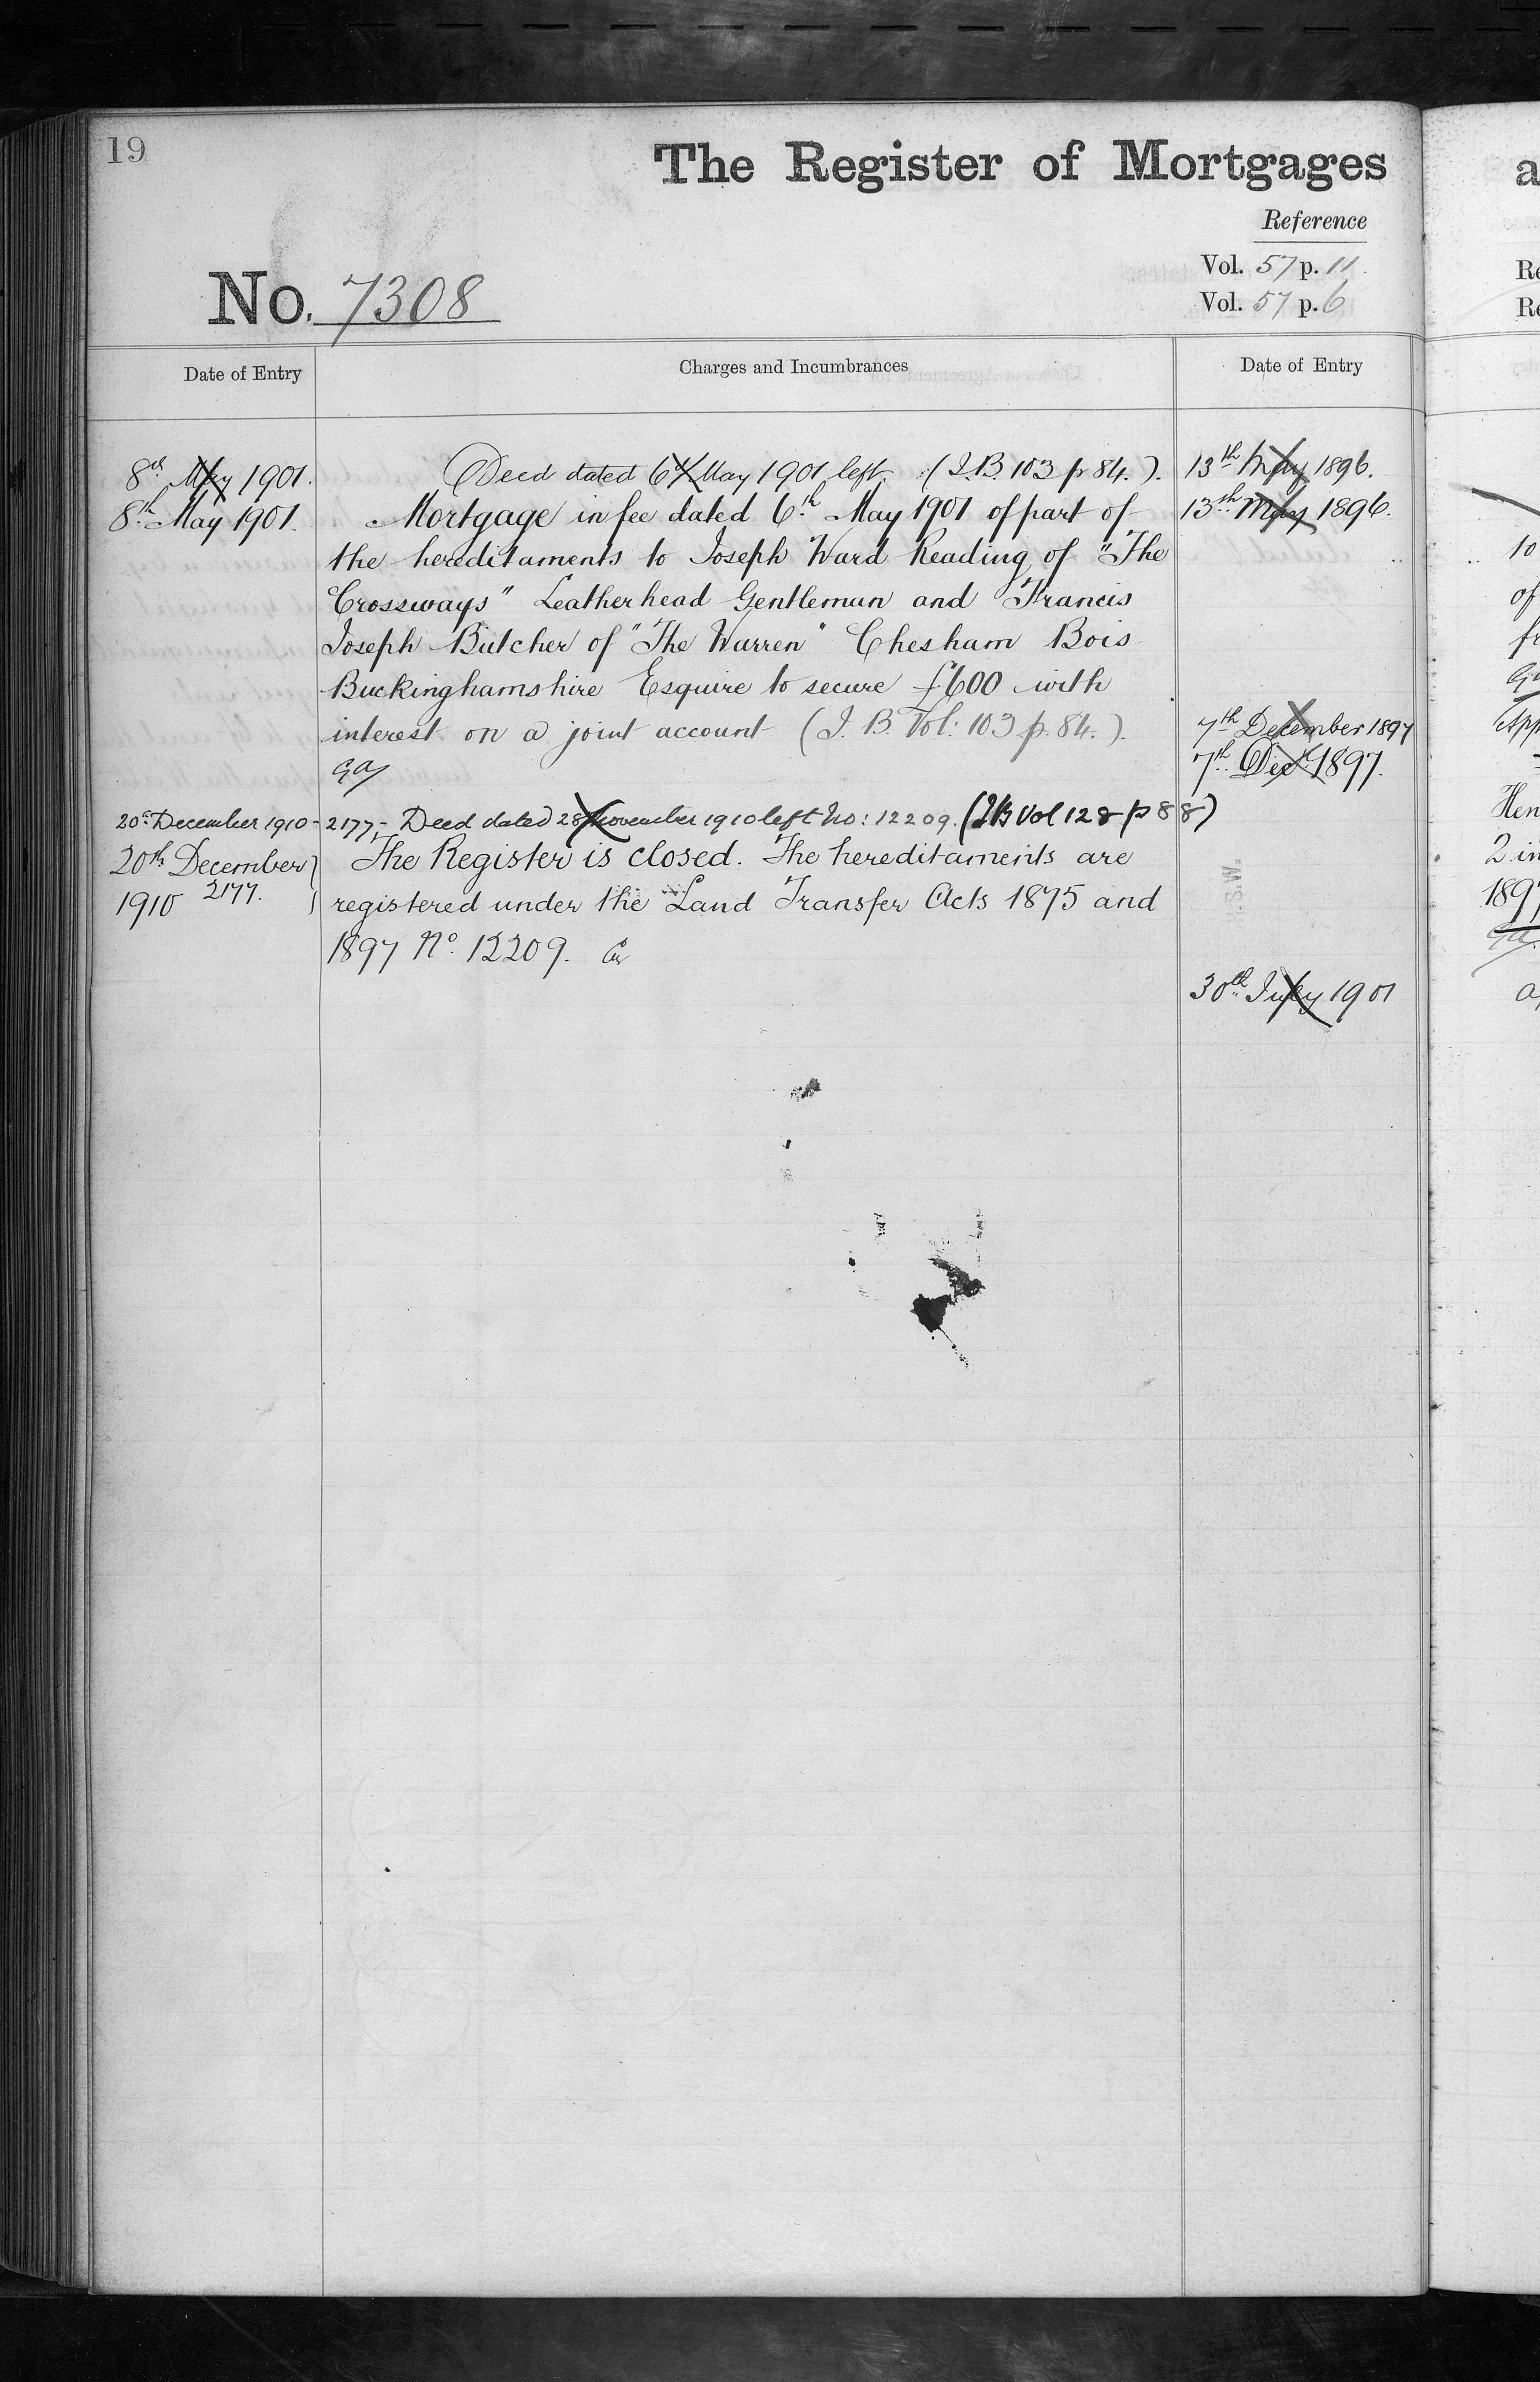 19
The Register of Mortgages
Reference
Vol. 57 p. 11.
Vol. 57 p. 6
No. 7308
Date of Entry
Charges and Incumbrances
Date of Entry
8th May 1901. Deed dated 6th May 1901 left. (I.B. 103 p 84.). 13th May 1896.
8th May 1901. Mortgage in fee dated 6th May 1901 of part of 13th May 1896.
the hereditaments to Joseph Ward Reading of "The
Crossways" Leatherhead Gentleman and Francis
Joseph Butcher of "The Warren" Chesham Bois
Buckinghamshire Esquire to secure £600 with
interest on a joint account (I. B. Vol: 103 p. 84.). 7th December 1897
7th Decr 1897.
20th December 1910 - 2177,- Deed dated 28 November 1910 left No: 12209. (IB Vol 128 p 88)
20th December The Register is closed. The hereditaments are
1910 2177. registered under the Land Transfer Acts 1875 and
1897 No. 12209.
30th July 1901
a
Re
Re
10
of
fr
App
Hen
2 in
1897